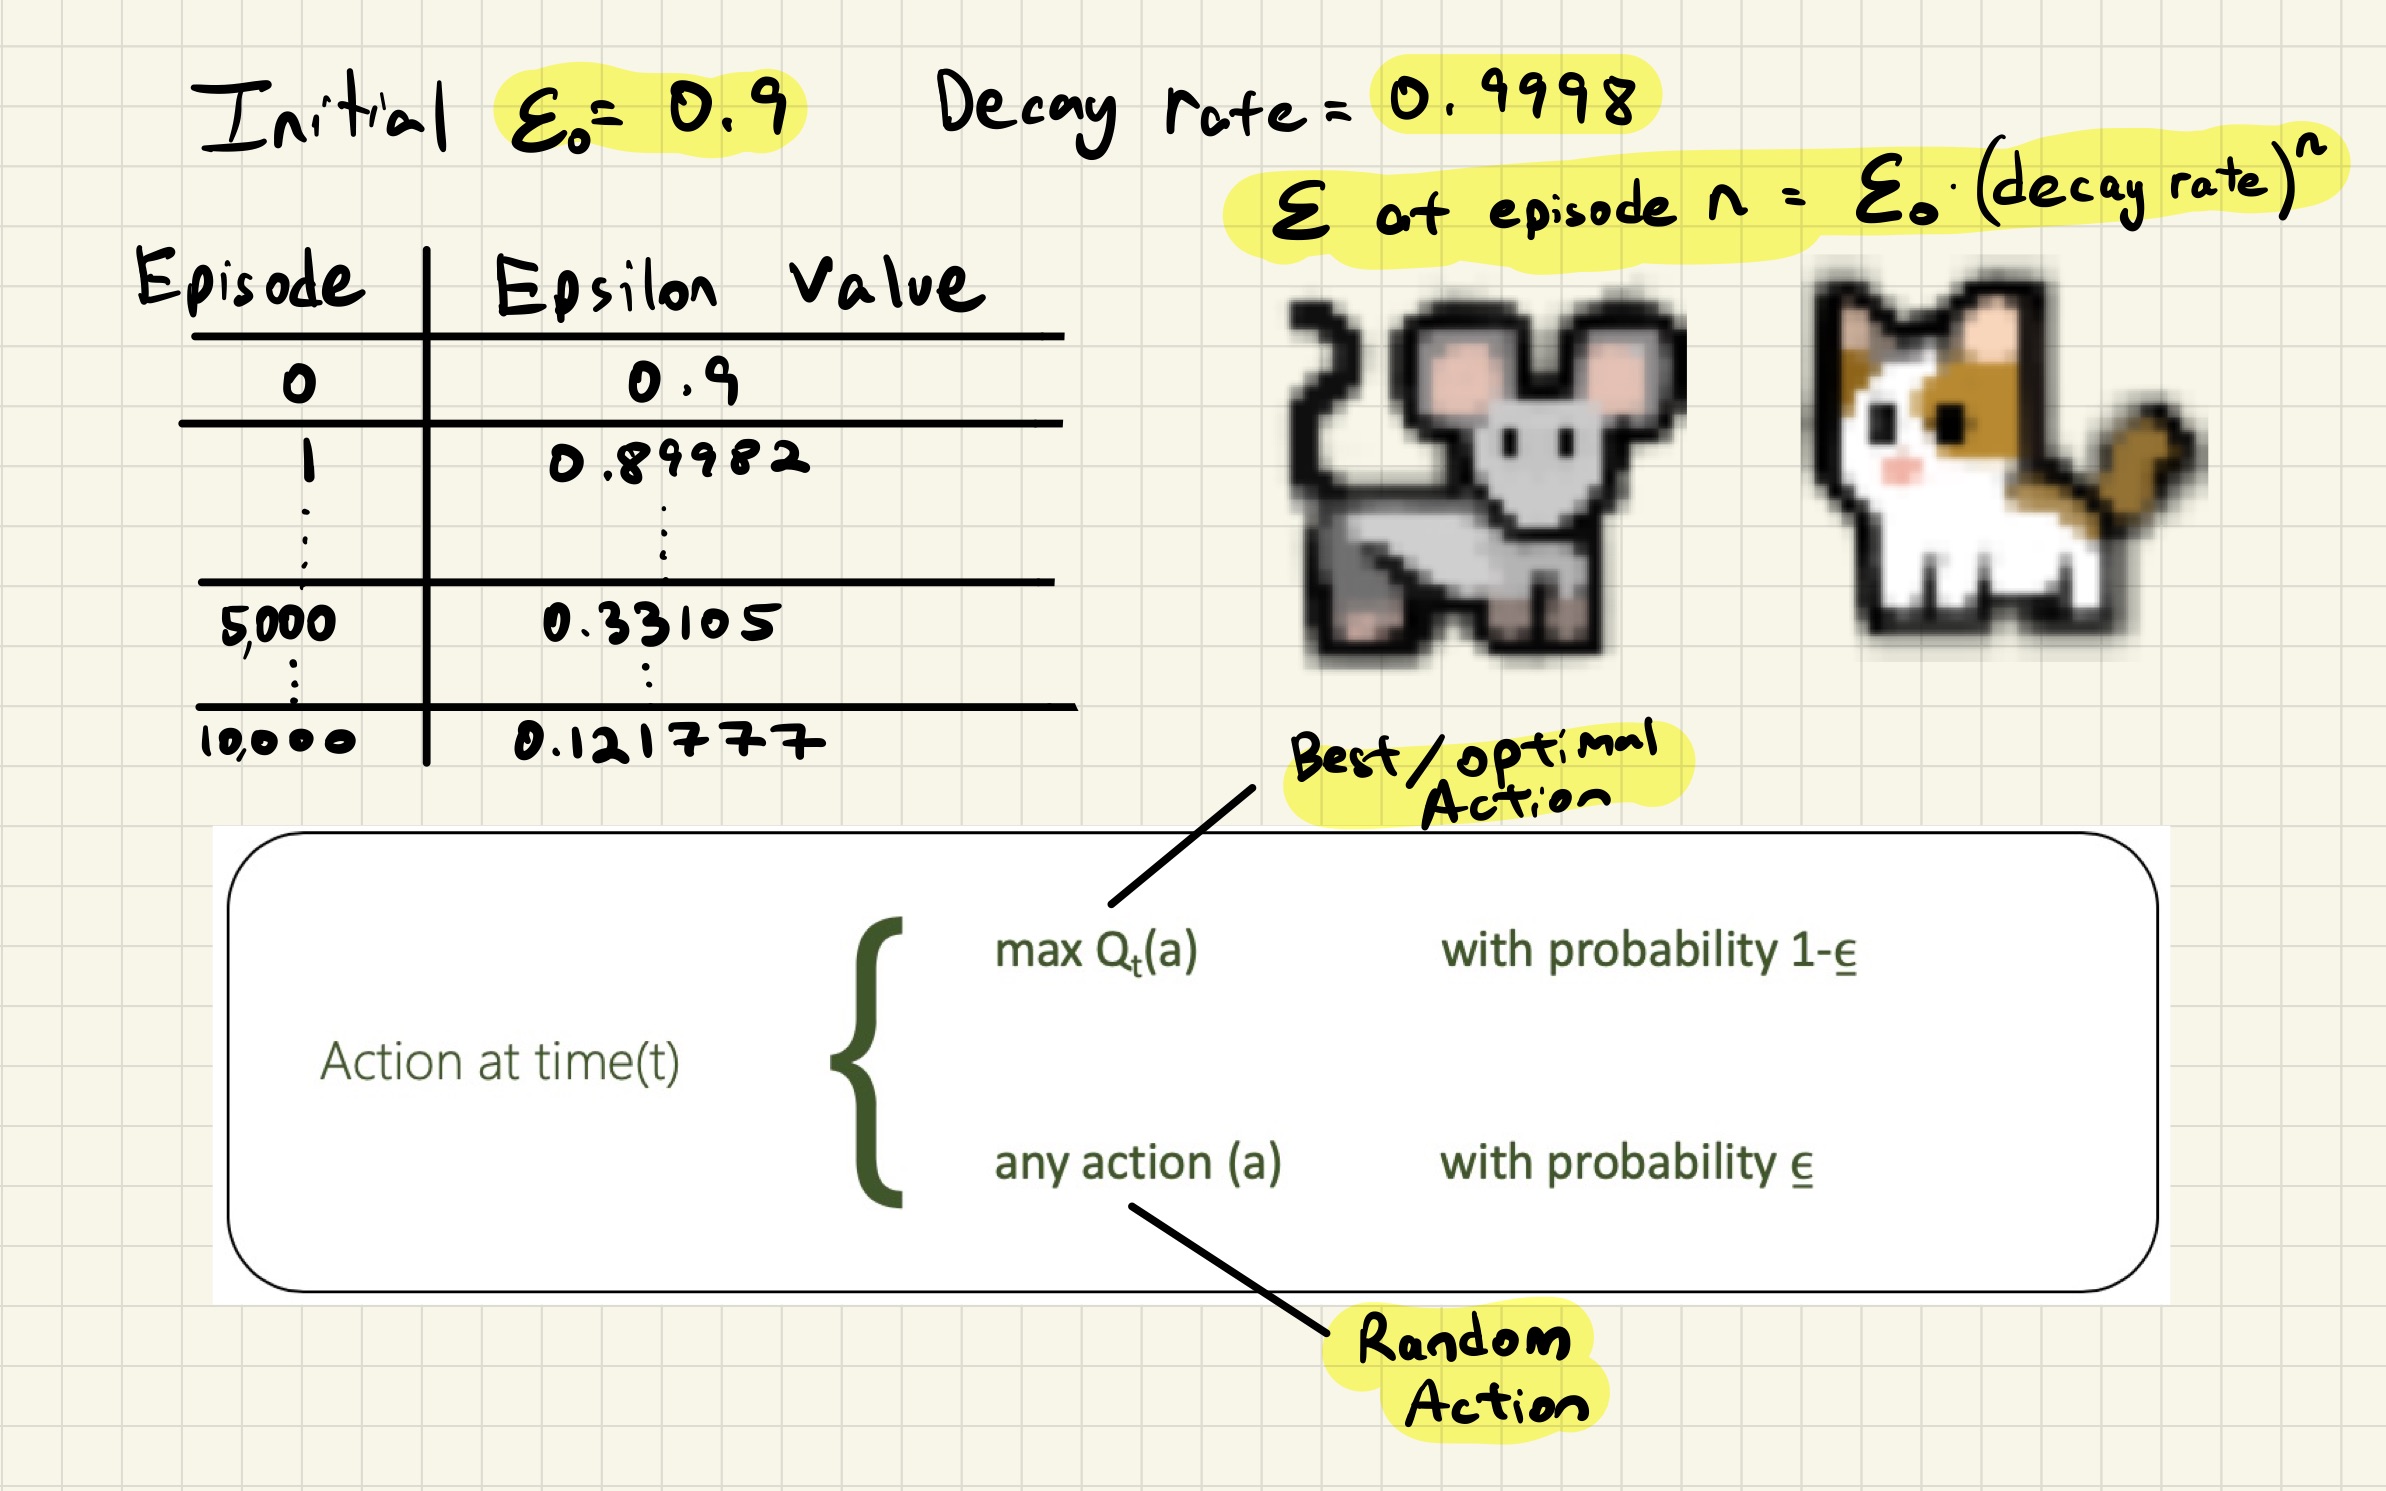 Initial ε₀ = 0.9 Decay rate = 0.9998
ε at episode n = ε₀ · (decay rate)ⁿ
Episode Epsilon Value
0 0.9
1 0.89982
⋮ ⋮
5,000 0.33105
⋮ ⋮
10,000 0.121777
Best/optimal
Action
max Qₜ(a) with probability 1-ϵ
Action at time(t)
any action (a) with probability ϵ
Random
Action